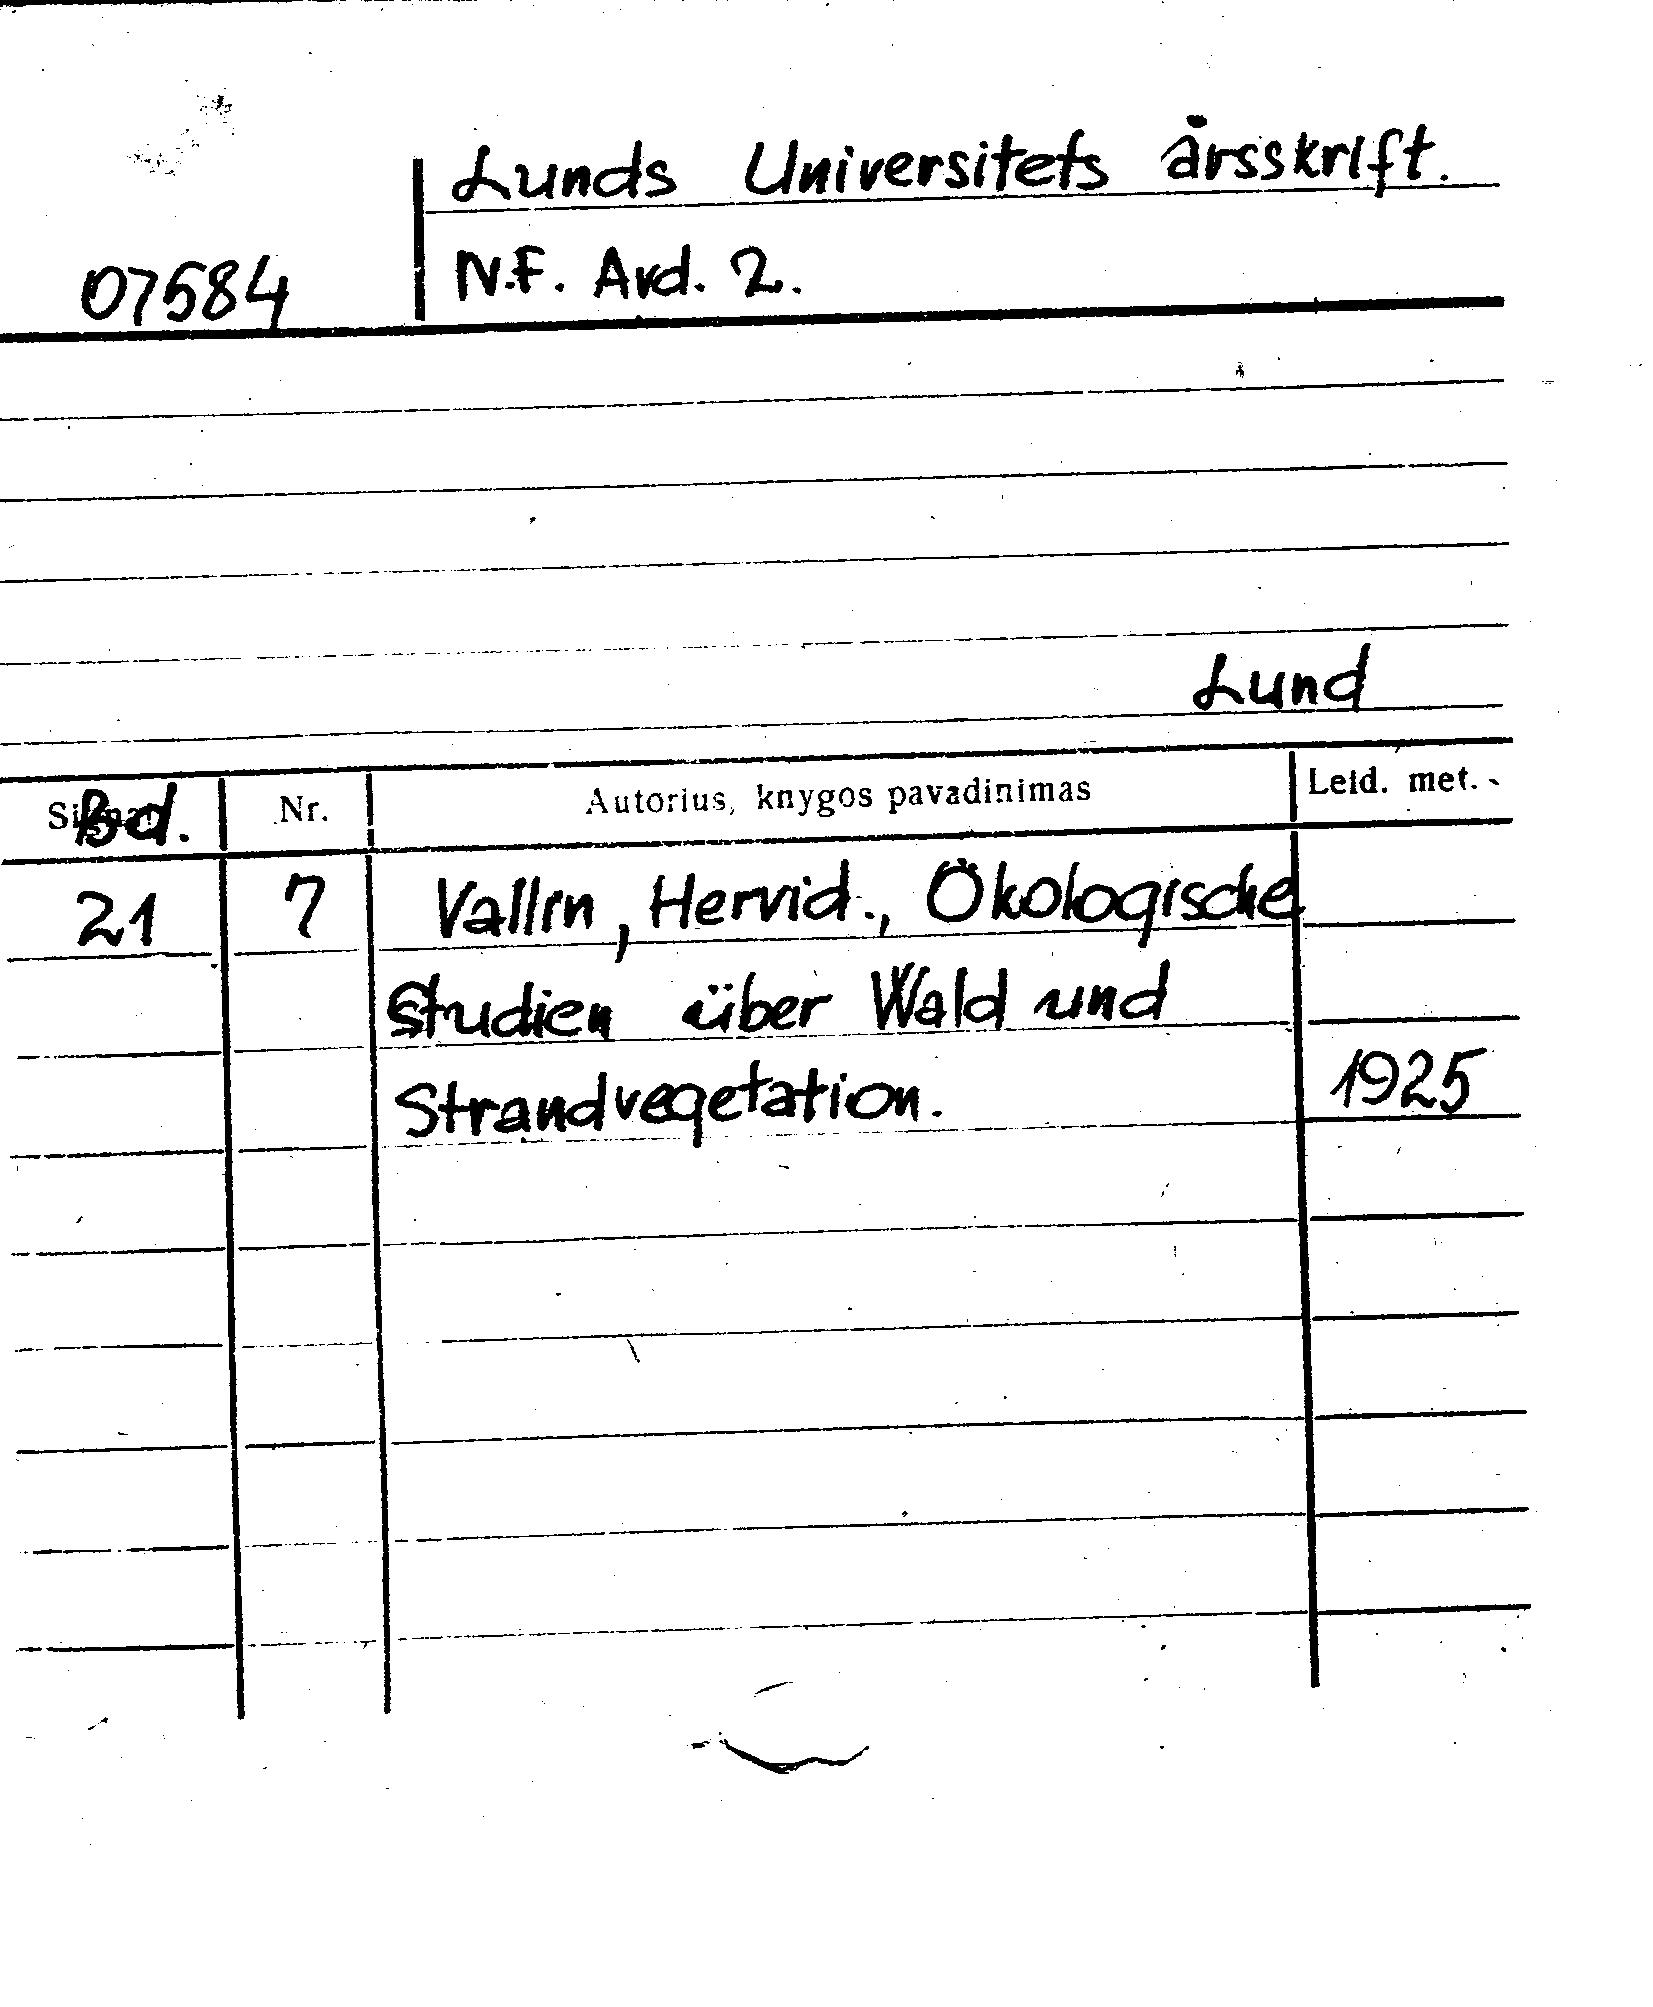 Lunds Universitets årsskrift.
07584 N.F. Avd. 2.
Lund
Bd. Nr. Autorius, knygos pavadinimas Leid. met.
21 7 Vallin, Hervid., Ökologische
Studien über Wald und
Strandvegetation. 1925